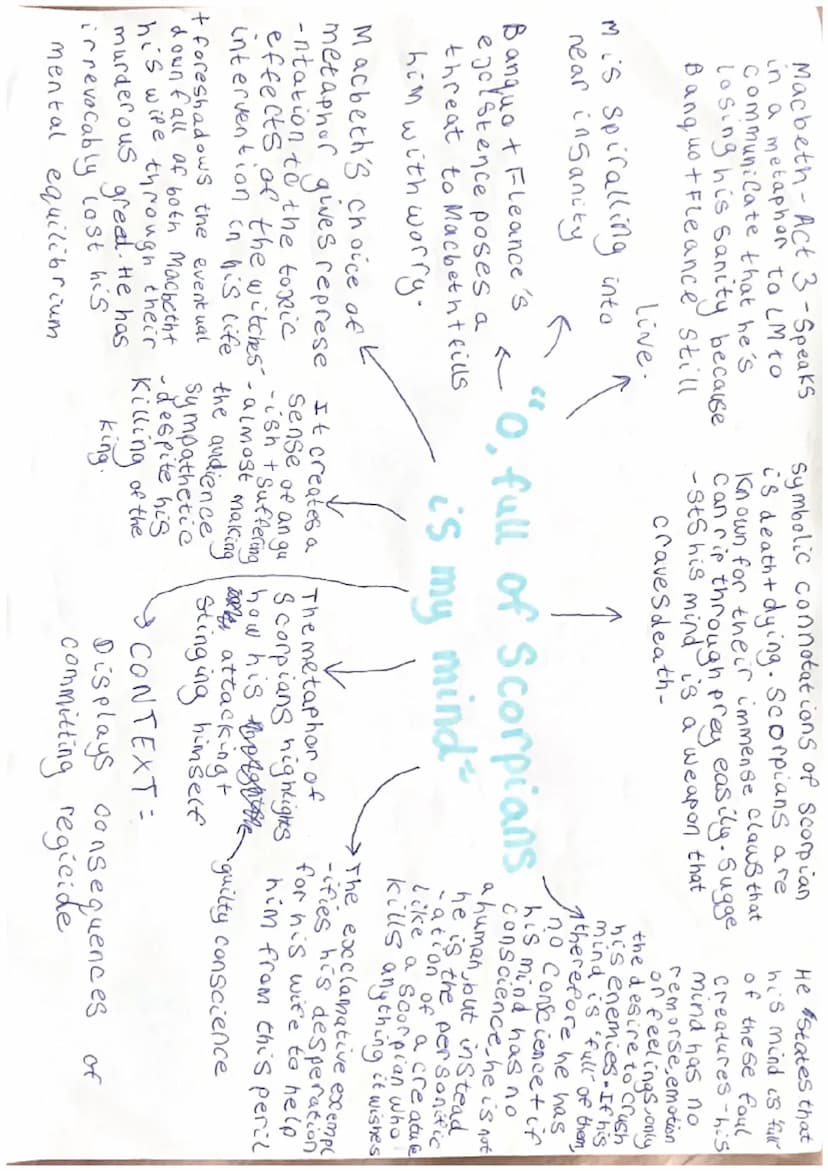 Macbeth - Act 3 - Speaks
in a metaphor to LM to
communicate that he's
losing his sanity because
Banquo + Fleance still
live.
M is spiralling into
near insanity
Banquo + Fleance's
existence poses a
threat to Macbeth + fills
him with worry.
Macbeth's choice of
metaphor gives represe
-ntation to the toxic
effects of the witches'
intervention in his life
+ foreshadows the eventual
downfall of both Macbeth +
his wife through their
murderous greed. He has
irrevocably lost his
mental equilibrium
Symbolic connotations of scorpian
is death + dying. Scorpians are
known for their immense claws that
can rip through prey easily. Sugge
-sts his mind is a weapon that
craves death -
"O, full of scorpians
is my mind"
It creates a
sense of angu
-ish + suffering
- almost making
the audience
sympathetic
- despite his
killing of the
king.
The metaphor of
scorpians highlights
how his
attacking +
stinging himself
guilty conscience
CONTEXT:
Displays consequences of
committing regicide
He states that
his mind is full
of these foul
creatures - his
mind has no
remorse, emotion
or feelings, only
the desire to crush
his enemies. If his
mind is 'full' of them,
therefore he has
no conscience + if
his mind has no
conscience, he is not
a human, but instead
he is the personific
-ation of a creature
like a scorpian who
kills anything it wishes
The exclamative exempl
-ifies his desperation
for his wife to help
him from this peril